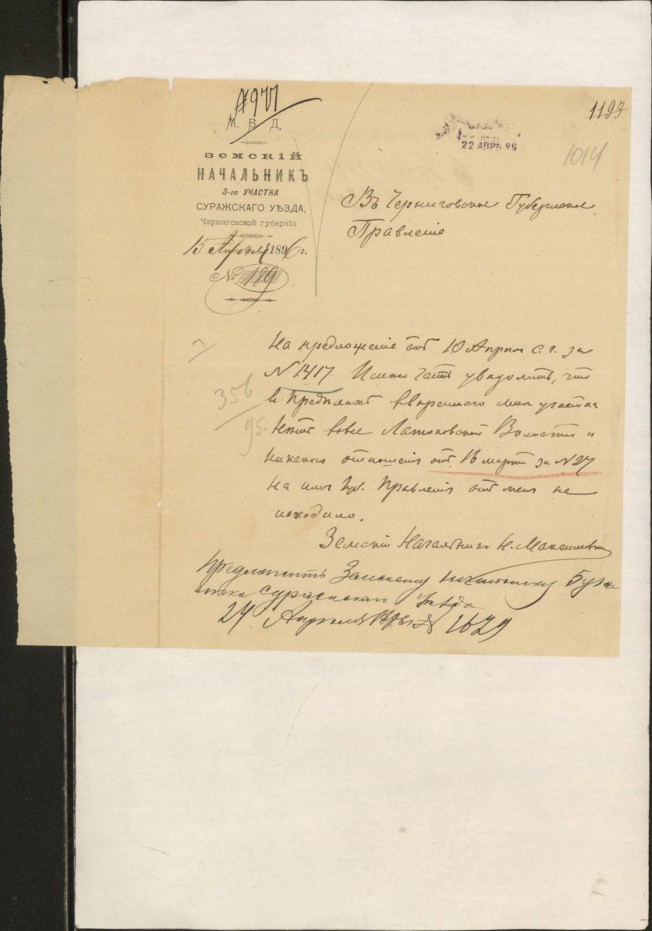 1193
М. В. Д.
22 АПРѢ 96
1014
ЗЕМСКІЙ
НАЧАЛЬНИКЪ
3-го УЧАСТКА
СУРАЖСКАГО УѢЗДА,
Черниговской губерніи
15 Апрѣля 1896 г.
№ 189
Въ Черниговское Губернское
Правленіе
На предложеніе отъ 10 Апрѣля с. г. за
№ 1417 Имѣю честь увѣдомить, что
въ предѣлахъ ввѣреннаго мнѣ участка
нѣтъ вовсе Волости и
никакого отношенія отъ 13 марта за № 27
на имя Губ. Правленія отъ меня не
исходило.
356
95
Земскій Начальникъ Н. Максимовичъ
Предложить Земскому Начальнику
Суражскаго Уѣзда
24 Апрѣля № 1629